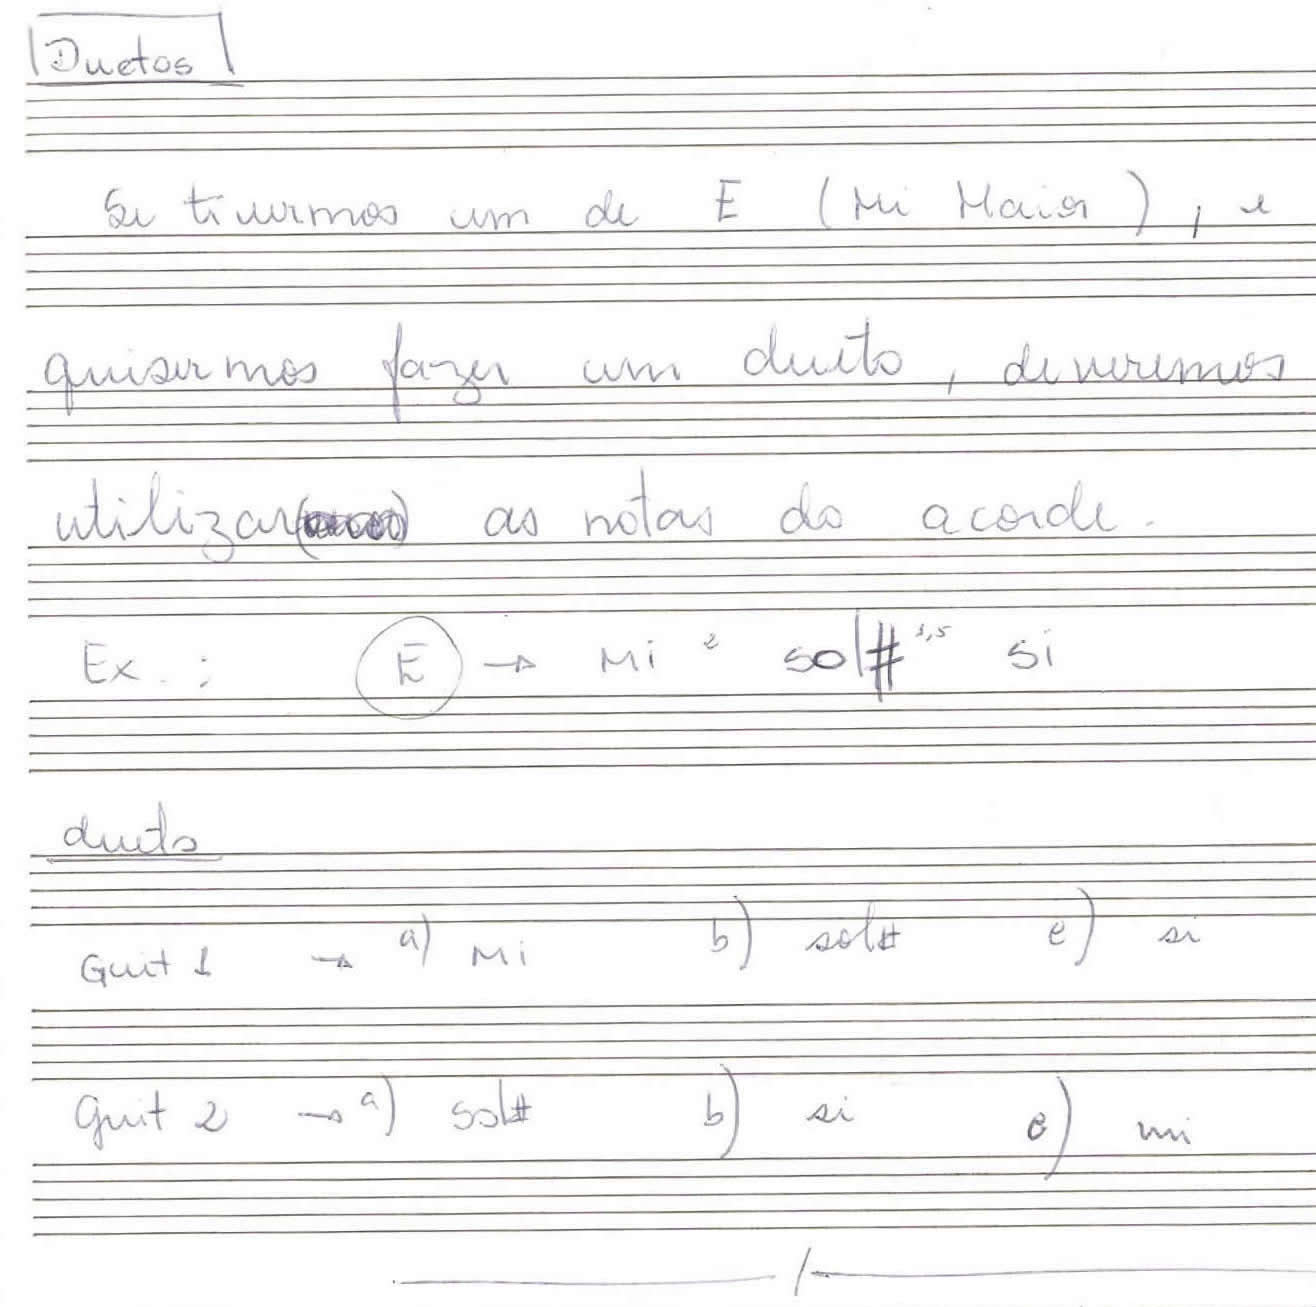 Duetos
Se tivermos um de E (Mi Maior), e
quisermos fazer um dueto, deveremos
utilizar as notas do acorde.
Ex.: E → Mi 2 sol# 1,5 si
dueto
Guit 1 → a) Mi b) sol# c) si
Guit 2 → a) sol# b) si c) mi